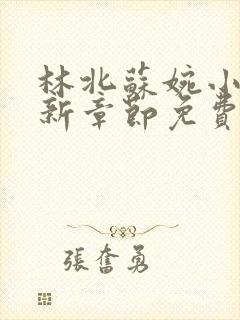 林北蘇婉小
新章節免費
張奮勇